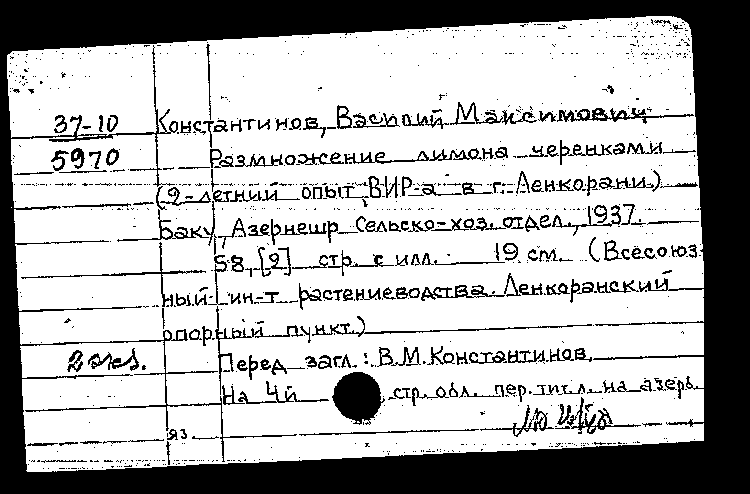 37-10 Константинов, Василий Максимович
5970 Размножение лимона черенками
(2-летний опыт ВИР-а в г. Ленкорани.)
Баку, Азернешр Сельско-хоз. отдел., 1937.
58, [2] стр. с илл. 19 см. (Всесоюз-
ный ин-т растениеводства. Ленкоранский
опорный пункт.)
2 экз. Перед загл.: В.М. Константинов.
На 4й стр. обл. пер. тит. л. на азерб.
яз.